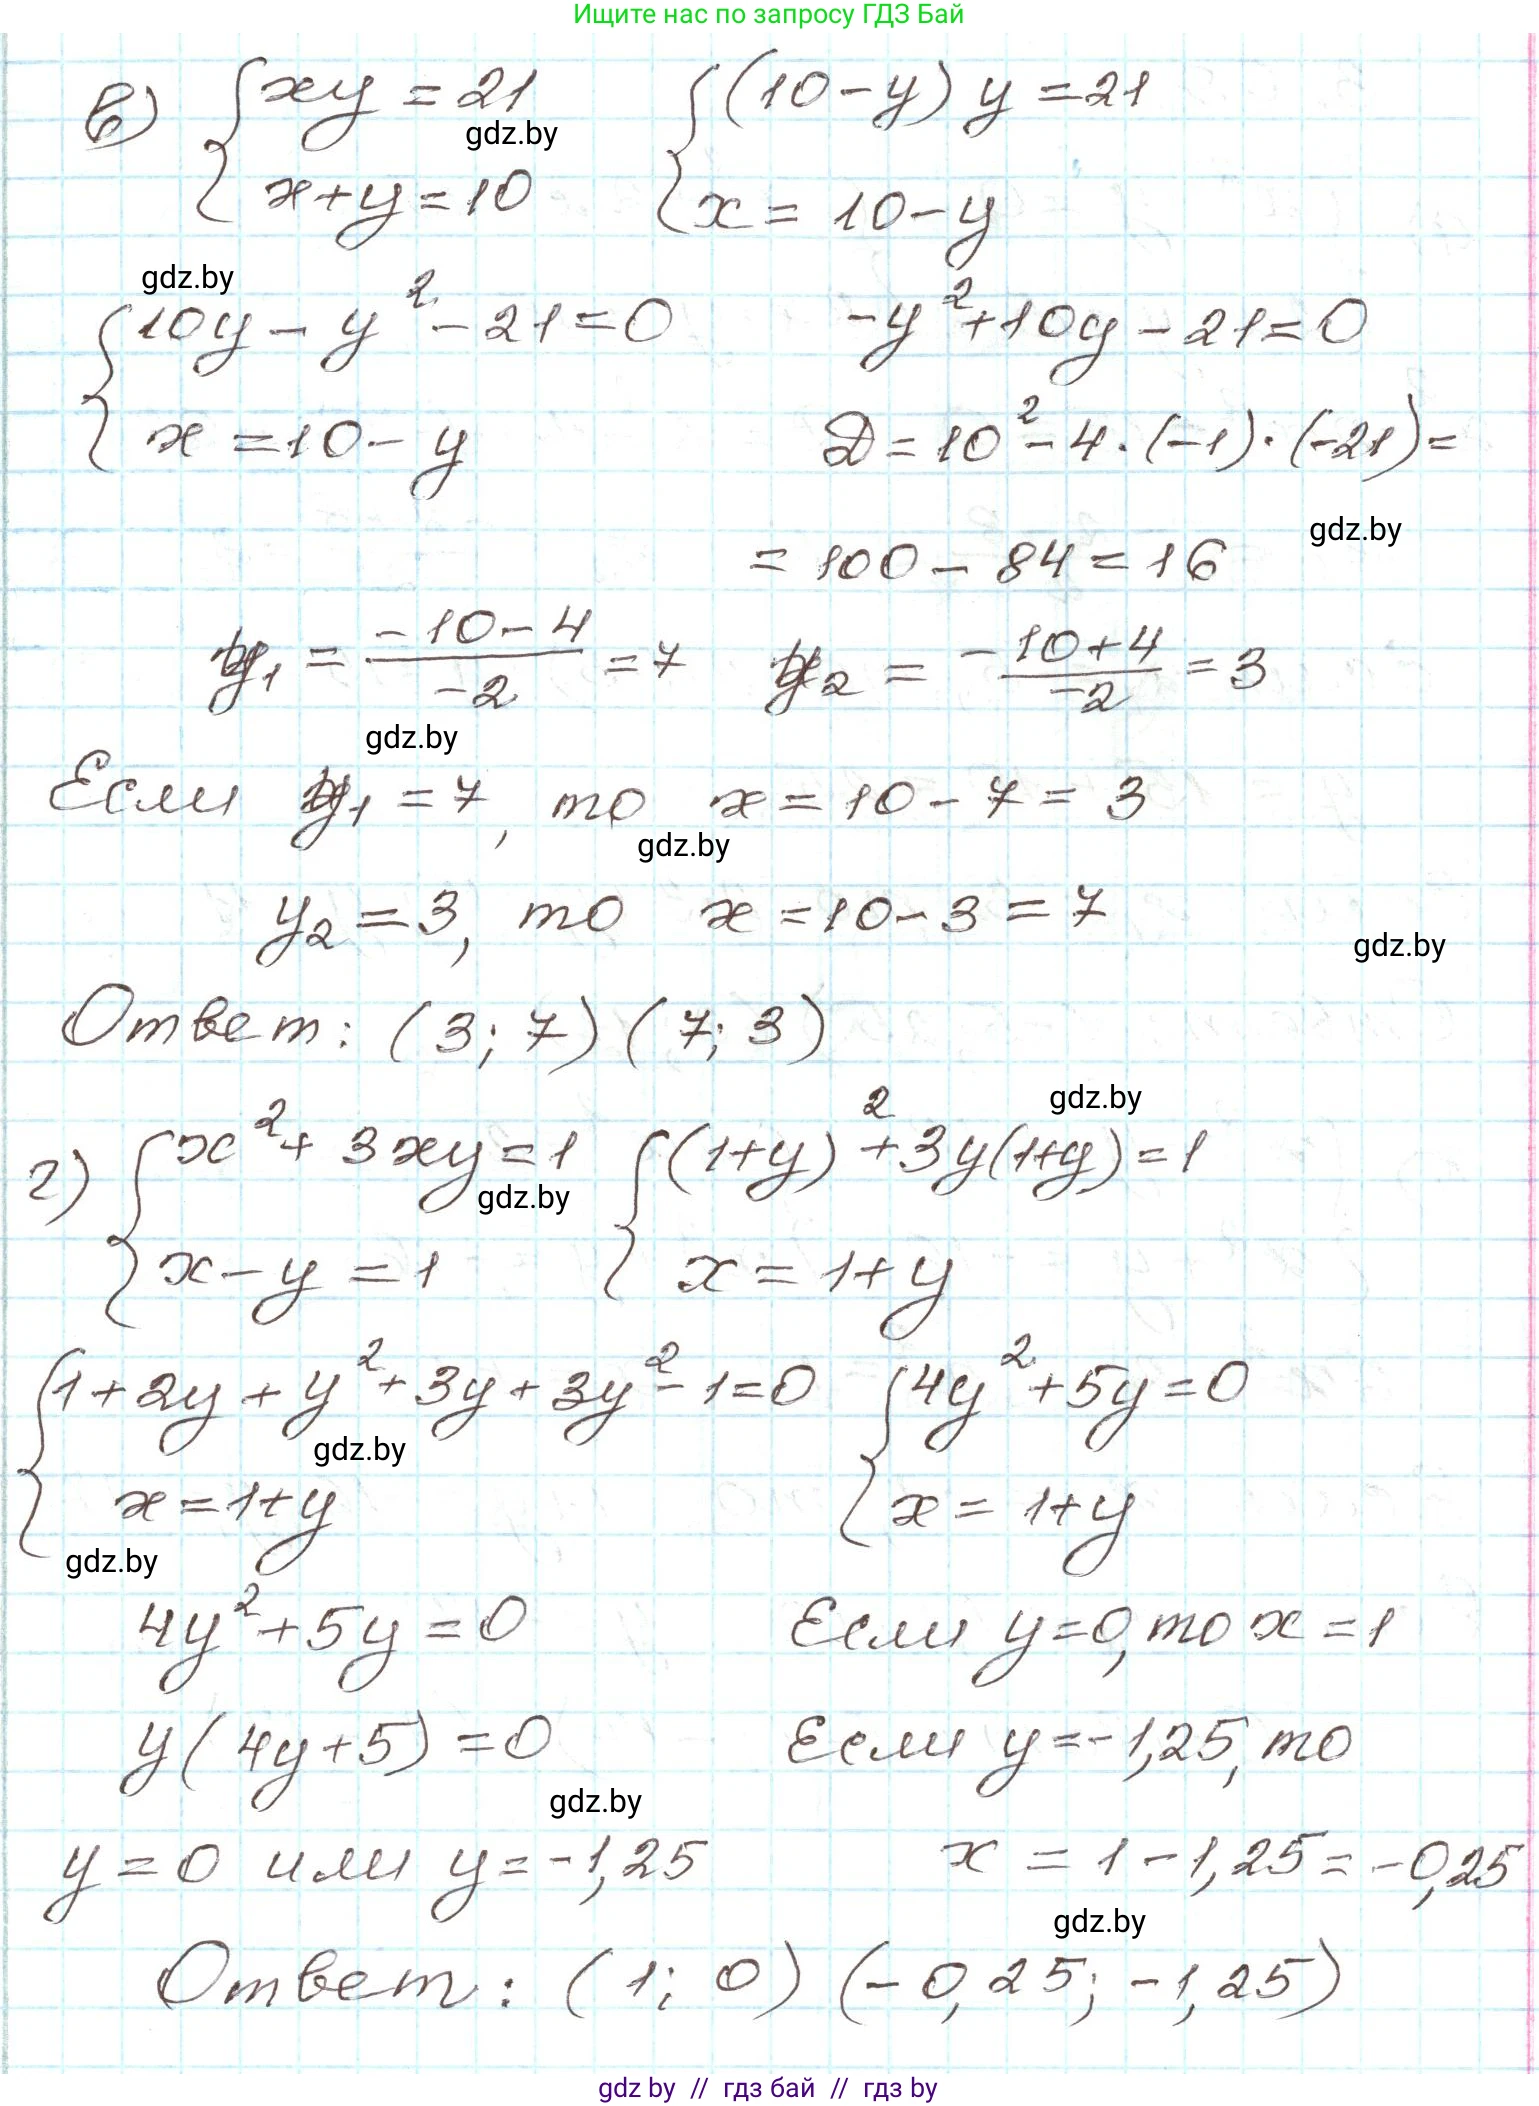 Ищите нас по запросу ГДЗ Бай
в) { xy = 21   { (10 - y) y = 21
gdz.by
x + y = 10   x = 10 - y
gdz.by
{ 10y - y² - 21 = 0   -y² + 10y - 21 = 0
x = 10 - y   D = 10² - 4 · (-1) · (-21) =
gdz.by
= 100 - 84 = 16
y₁ = (-10 - 4)/(-2) = 7   y₂ = -(10 + 4)/(-2) = 3
gdz.by
Если y₁ = 7, то x = 10 - 7 = 3
gdz.by
y₂ = 3, то x = 10 - 3 = 7
gdz.by
Ответ: (3; 7) (7; 3)
gdz.by
г) { x² + 3xy = 1   { (1+y)² + 3y(1+y) = 1
gdz.by
x - y = 1   x = 1 + y
{ 1 + 2y + y² + 3y + 3y² - 1 = 0   { 4y² + 5y = 0
gdz.by
x = 1 + y   x = 1 + y
gdz.by
4y² + 5y = 0   Если y = 0, то x = 1
y(4y + 5) = 0   Если y = -1,25, то
gdz.by
y = 0 или y = -1,25   x = 1 - 1,25 = -0,25
gdz.by
Ответ: (1; 0) (-0,25; -1,25)
gdz by // гдз бай // гдз by